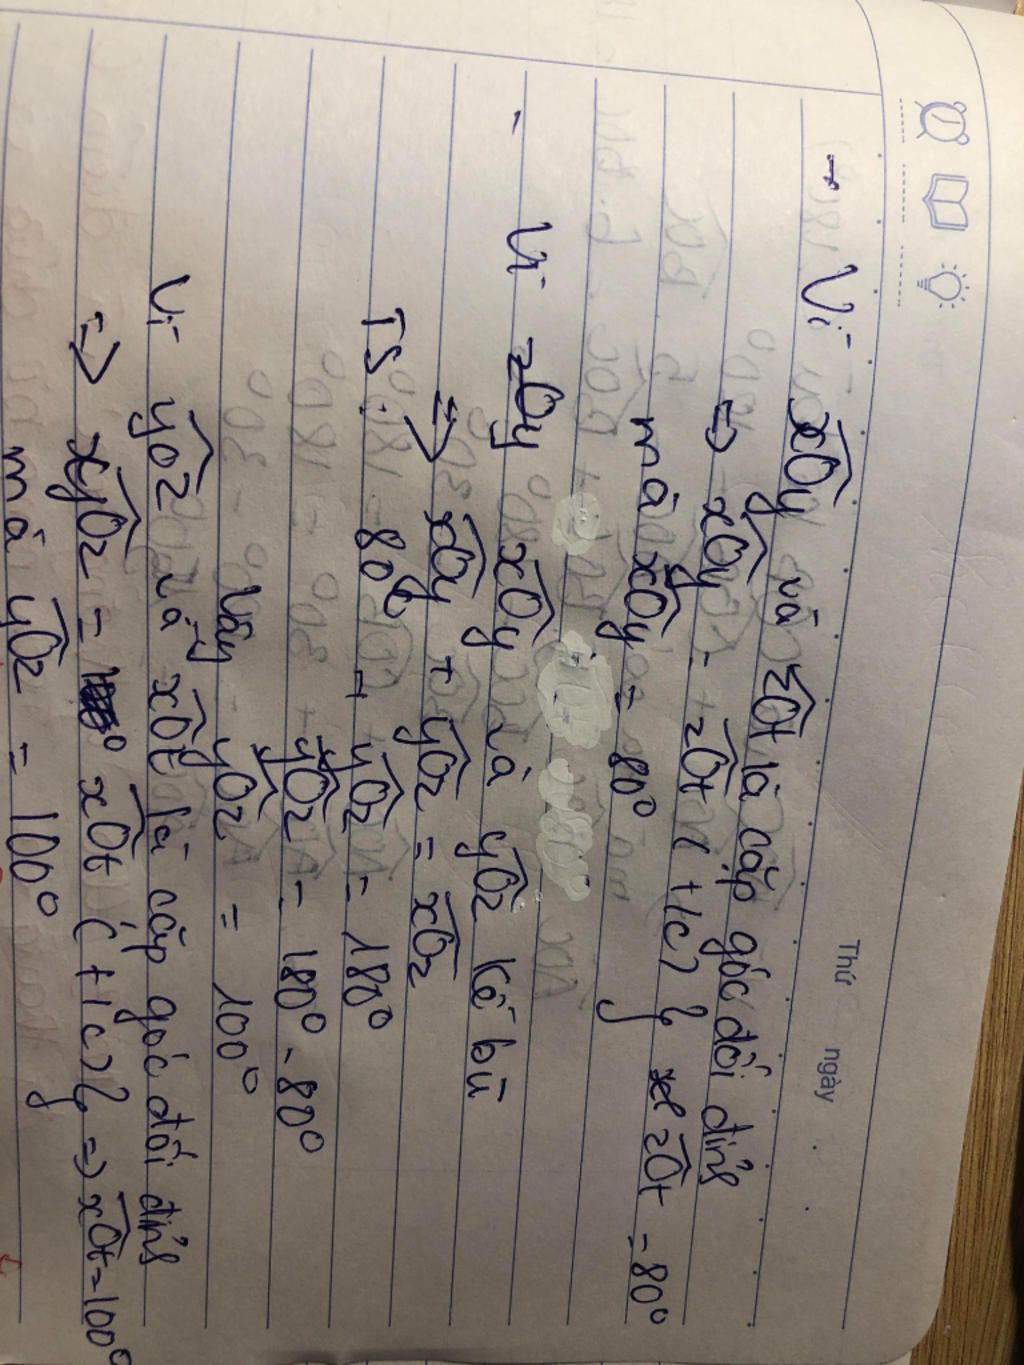 Thứ ngày
- Vì xOy và zOt là cặp góc đối đỉnh
=> xOy = zOt (t/c) } zOt = 80°
mà xOy = 80°
- Vì zOy xOy và yOz kề bù
=> xOy + yOz = xOz
TS: 80° + yOz = 180°
yOz = 180° - 80°
Vậy yOz = 100°
Vì yOz và xOt là cặp góc đối đỉnh
=> xyOz = xOt (t/c) } => xOt = 100°
mà yOz = 100°